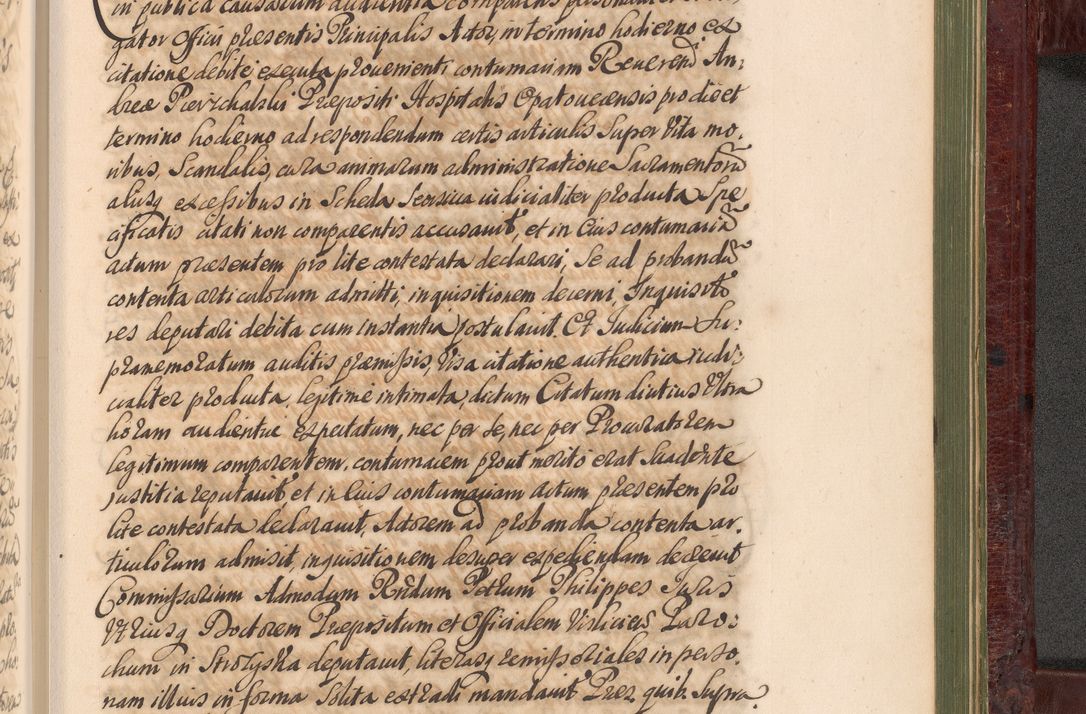 in publica causarum audientia comparens personaliter
gator Officii præsentis Principalis Actor, in termino hodierno ex
citatione debite executa provenienti contumaciam Reverendi An-
dreæ Pierzchalski Præpositi Hospitalis Opatovecensis pro die et
termino hodierno ad respondendum certis articulis super Vita mo-
ribus, Scandalis, cura animarum administratione Sacramentorũ
aliisq excessibus in Scheda Seorsiva iudicialiter producta Spe
cificatis citati non comparentis accusavit, et in Eius contumaciã
actum præsentem pro lite contestata declarari, Se ad probandũ
contenta articulorum admitti, inquisitionem decerni, Inquisito
res deputari debita cum instantia postulavit. Et Iudicium Su-
pramemoratum auditis præmissis, Visa citatione authentica iudi-
cialiter producta, legitime intimata, dictum Citatum diutius Ultra
horam audientiæ expectatum, nec per se, nec per Procuratorem
legitimum comparentem, contumacem prout merito erat Suadente
justitia reputavit et in Eius contumaciam actum præsentem pro
lite contestata declaravit, Actorem ad probanda contenta ar-
ticulorum admisit, inquisitionem desuper expediendam decrevit
Commissarium Admodum Rñdum Petrum Philippes Juris
Utriusq Doctorem Præpositum et Officialem Visliciens Paro-
chum in Strozyska deputavit, literasq remissoriales in perso-
nam illius in forma Solita extradi mandavit Præs. quib. Supra